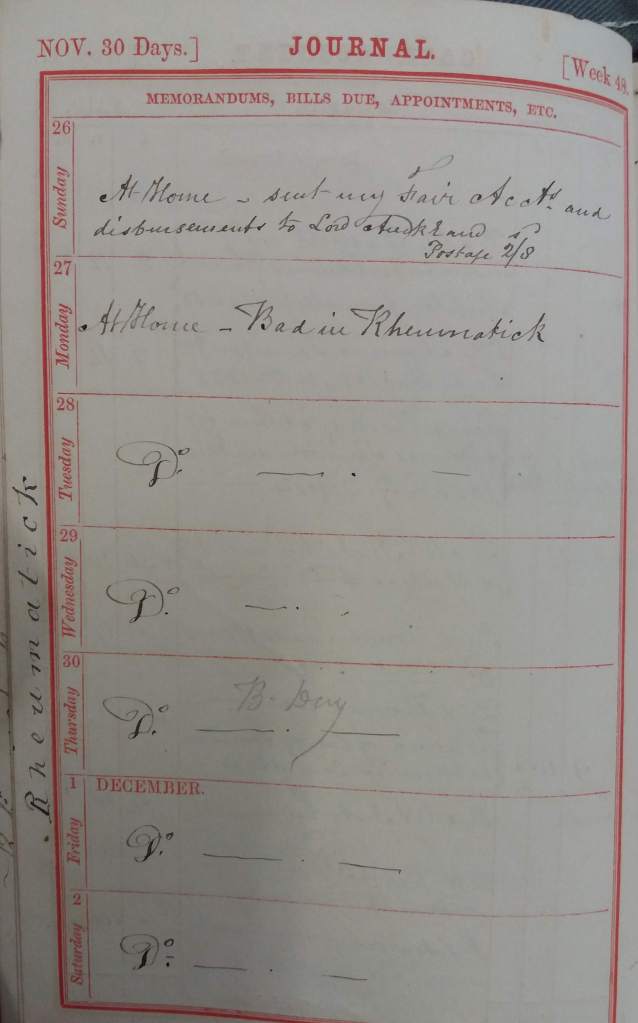 NOV. 30 Days.] JOURNAL. [Week 48.
MEMORANDUMS, BILLS DUE, APPOINTMENTS, ETC.
26
Sunday
At Home - sent my Fair Acc.ts and
disbursements to Lord Auckland
Postage 2/8
27
Monday
At Home - Bad in Rheumatick
28
Tuesday
Do. — . —
29
Wednesday
Do. — .
30
Thursday
B. Day
Do. — . —
1 DECEMBER.
Friday
Do. — . —
2
Saturday
Do. — . —
Rheumatick